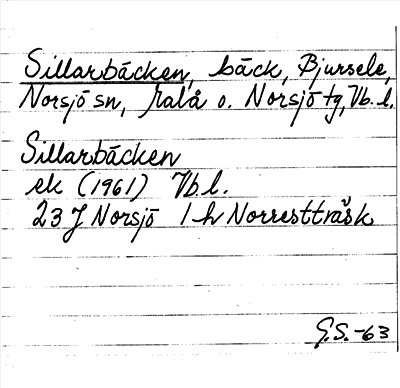 Sillarbäcken, bäck, Bjursele,
Norsjö sn, Malå o. Norsjö tg, Vb. l.
Sillarbäcken
ek (1961) Vb l.
23 J Norsjö 1 h Norrestträsk
G.S. -63